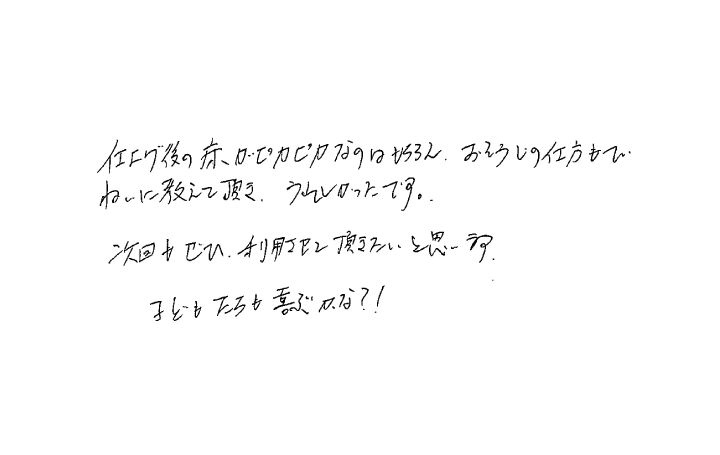 仕上げ後の床、がピカピカなのは勿ろん、おそうじの仕方もてい
ねいに教えて頂き、うれしかったです。
次回もぜひ、利用させて頂きたいと思います。
子どもたちも喜ぶかな?!